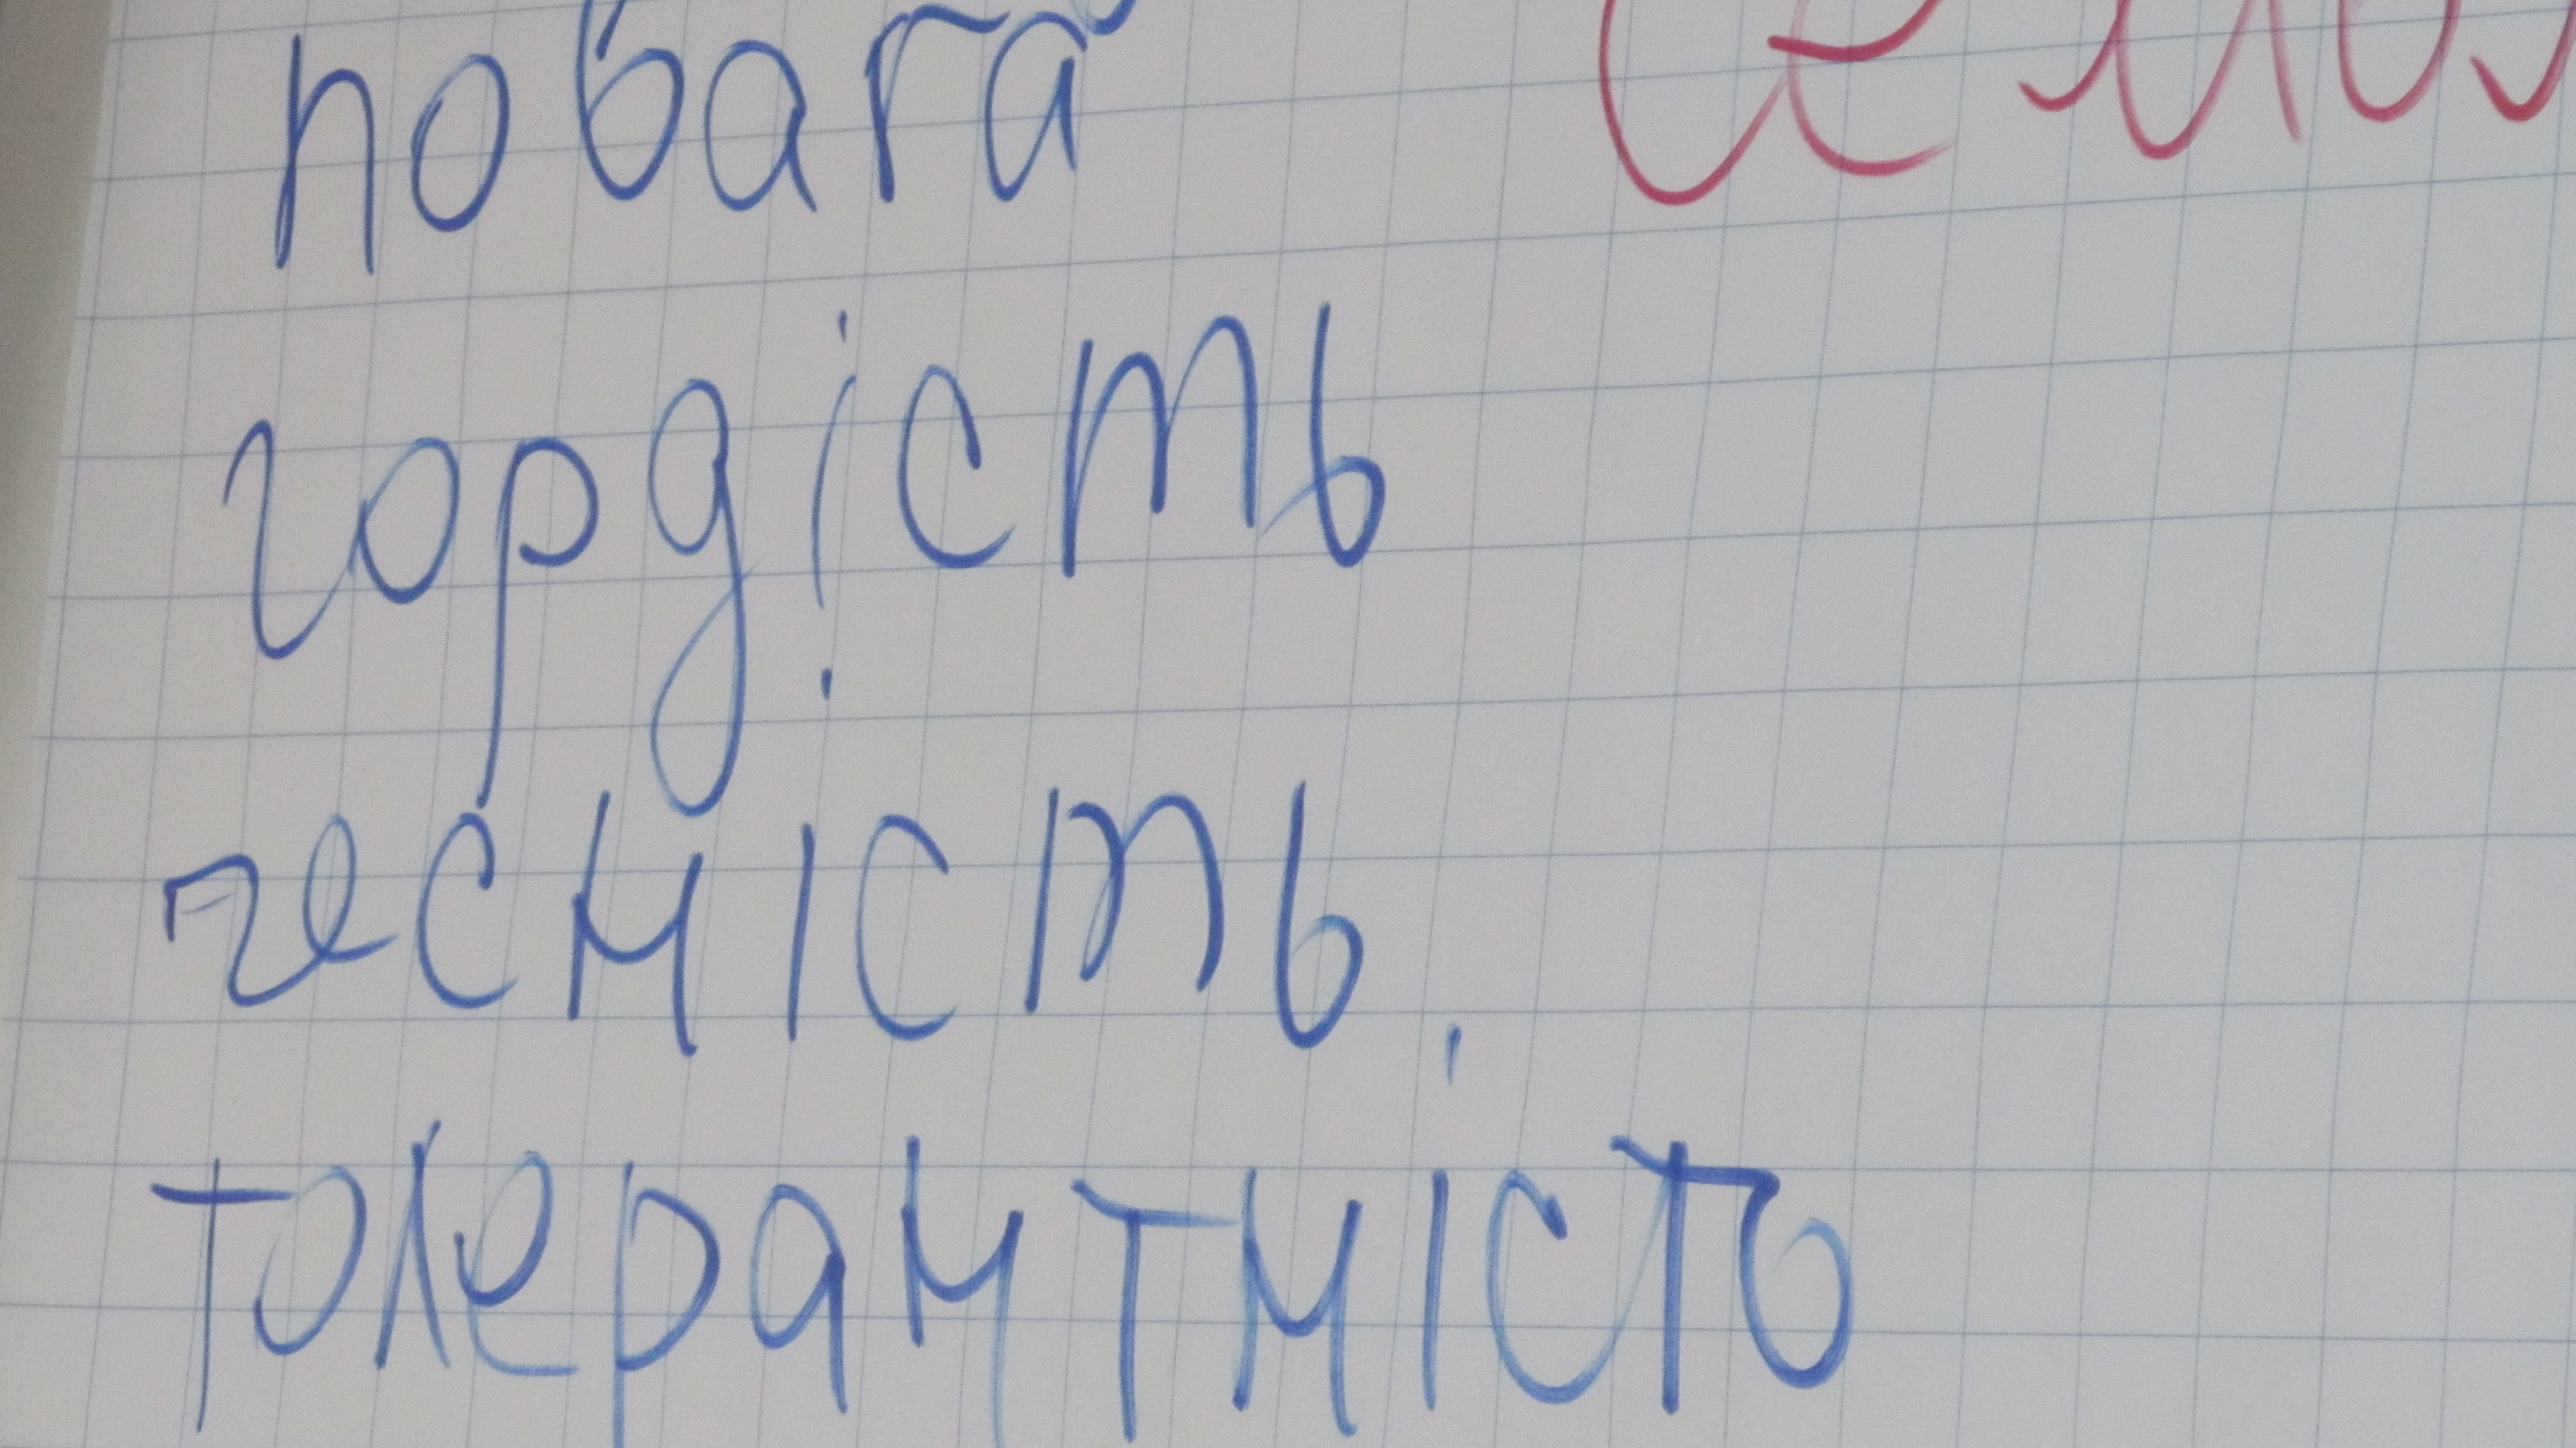 повага
гордість
чесність
толерантність